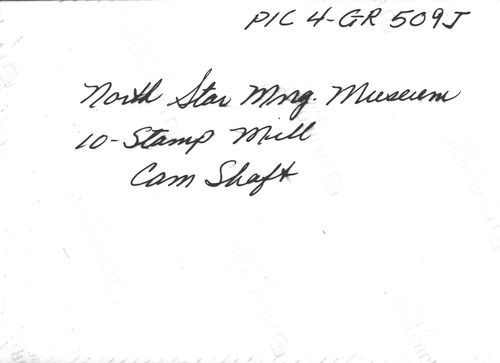 PIC 4-GR 509J
North Star Mng. Museum
10-Stamp Mill
Cam Shaft